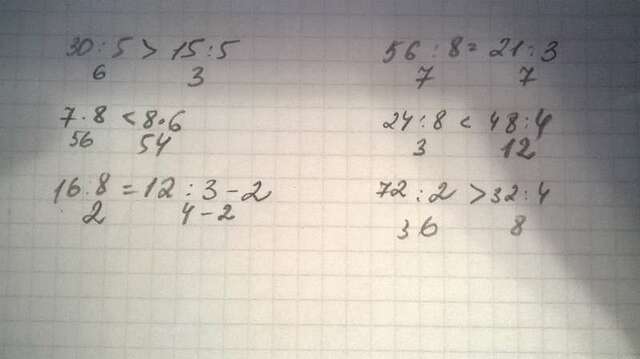 30 : 5 > 15 : 5
6 3
7 · 8 < 8 · 6
56 54
16 : 8 = 12 : 3 - 2
2 4 - 2
56 : 8 = 21 : 3
7 7
24 : 8 < 48 : 4
3 12
72 : 2 > 32 : 4
36 8